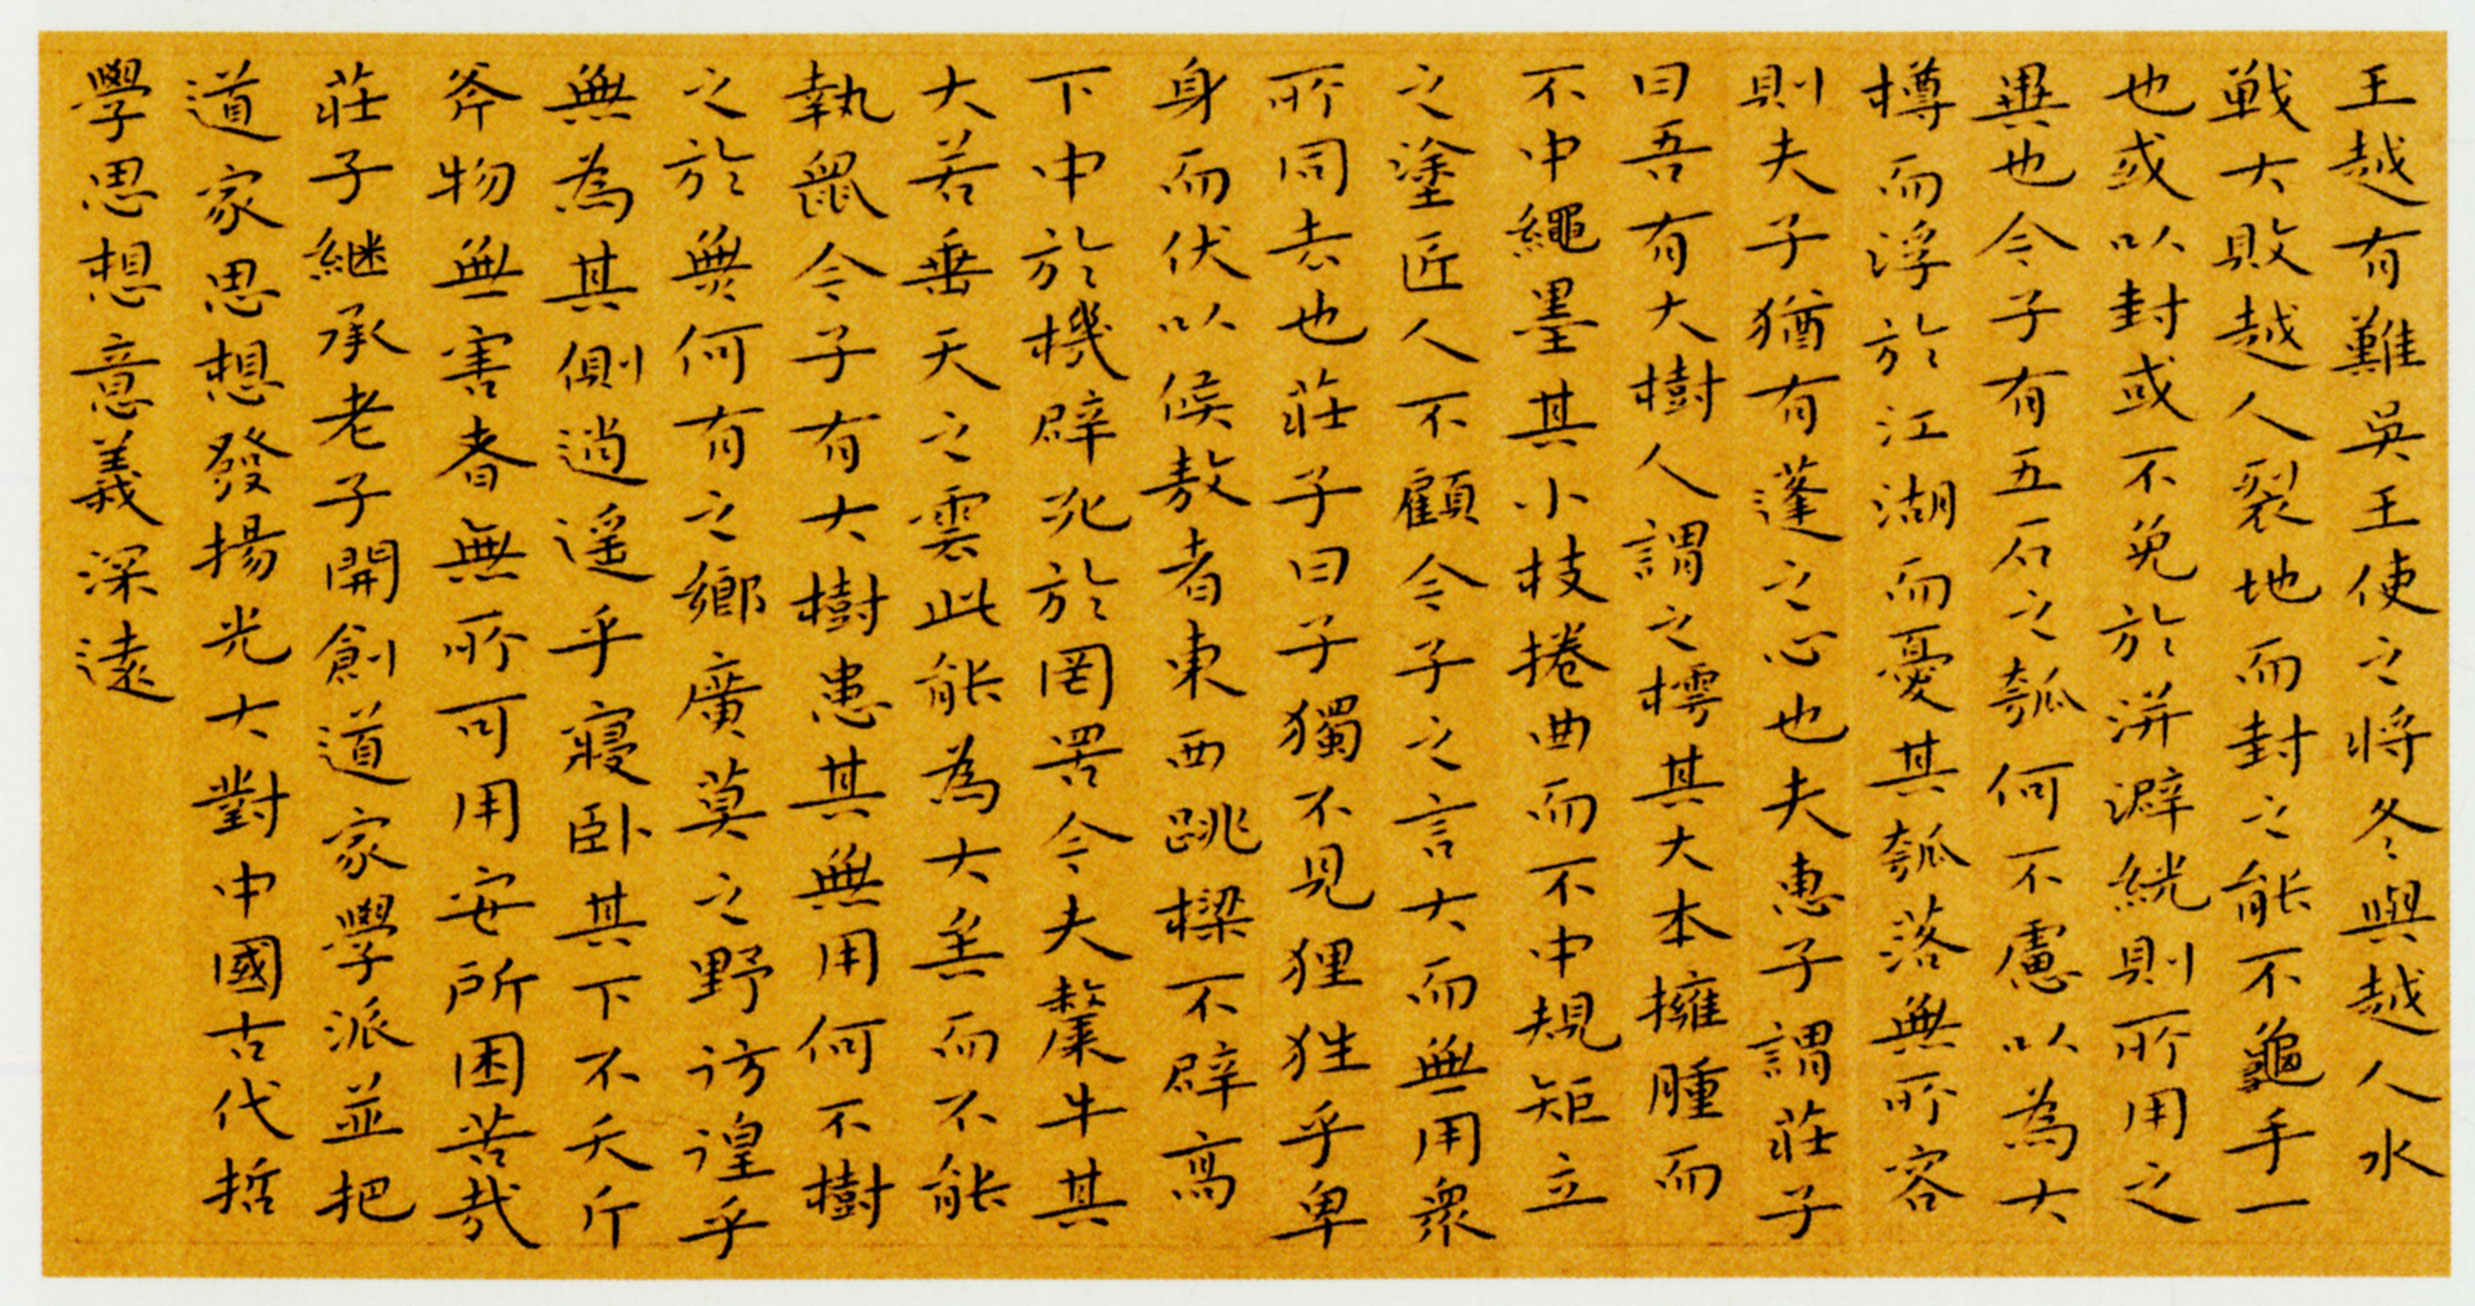 王越有難吳王使之将冬與越人水
戰大敗越人裂地而封之能不龜手一
也或以封或不免於洴澼絖則所用之
異也今子有五石之瓠何不慮以為大
樽而浮於江湖而憂其瓠落無所容
則夫子猶有蓬之心也夫惠子謂莊子
曰吾有大樹人謂之樗其大本擁腫而
不中繩墨其小枝捲曲而不中規矩立
之塗匠人不顧今子之言大而無用衆
所同去也莊子曰子獨不見狸狌乎卑
身而伏以候敖者東西跳樑不辟高
下中於機辟死於罔罟今夫斄牛其
大若垂天之雲此能為大矣而不能
執鼠今子有大樹患其無用何不樹
之於無何有之鄉廣莫之野彷徨乎
無為其側逍遥乎寢卧其下不夭斤
斧物無害者無所可用安所困苦哉
莊子継承老子開創道家學派並把
道家思想發揚光大對中國古代哲
學思想意義深遠